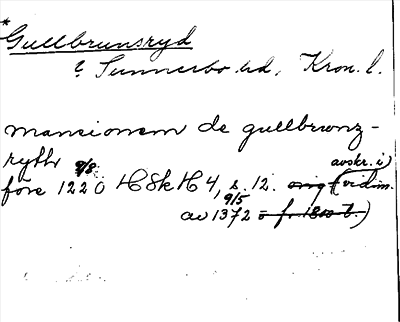 * Gullbrunsryd
? Sunnerbo hd, Kron. l.
mansionem de gullbrwnz-
rythr
före 9/8 1220 HSkH 4, s. 12. orig (avskr. i) vidim.
av 9/5 1372 o f. 1800 t.)